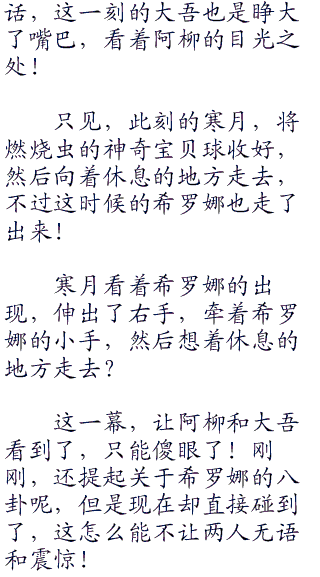 话，这一刻的大吾也是睁大
了嘴巴，看着阿柳的目光之
处！
只见，此刻的寒月，将
燃烧虫的神奇宝贝球收好，
然后向着休息的地方走去，
不过这时候的希罗娜也走了
出来！
寒月看着希罗娜的出
现，伸出了右手，牵着希罗
娜的小手，然后想着休息的
地方走去？
这一幕，让阿柳和大吾
看到了，只能傻眼了！刚
刚，还提起关于希罗娜的八
卦呢，但是现在却直接碰到
了，这怎么能不让两人无语
和震惊！